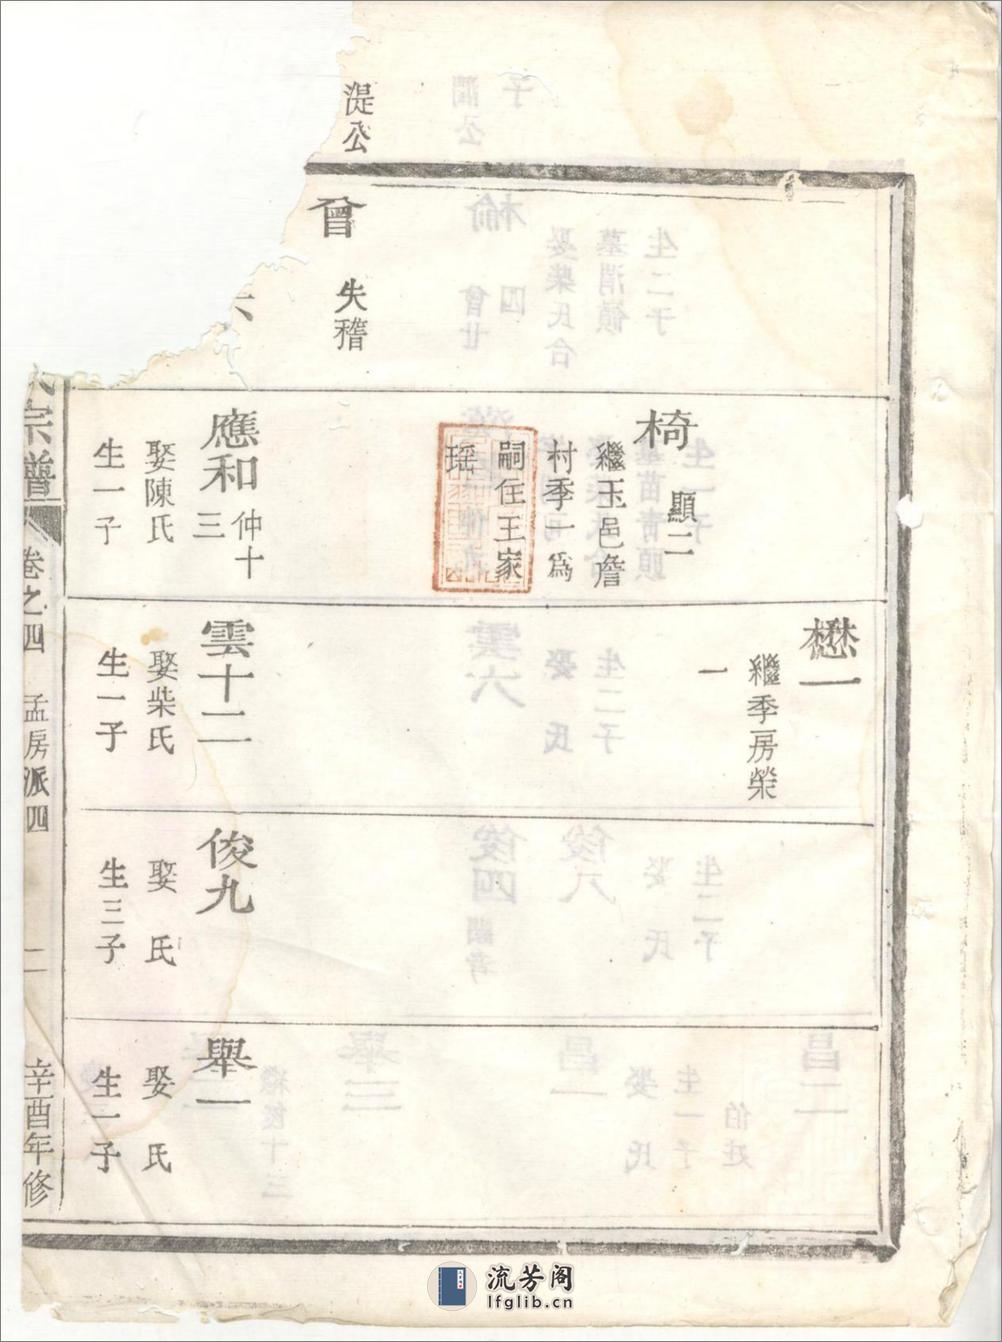 湜公
曾
失稽
椅
顯二
繼玉邑詹
村季一爲
嗣住王家
瑶
應和
仲十
三
娶陳氏
生一子
懋一
繼季房榮
一
雲十二
娶柴氏
生一子
俊九
娶 氏
生三子
舉一
娶 氏
生一子
宗譜
卷之四
孟房派四
二
辛酉年修
流芳阁
lfglib.cn